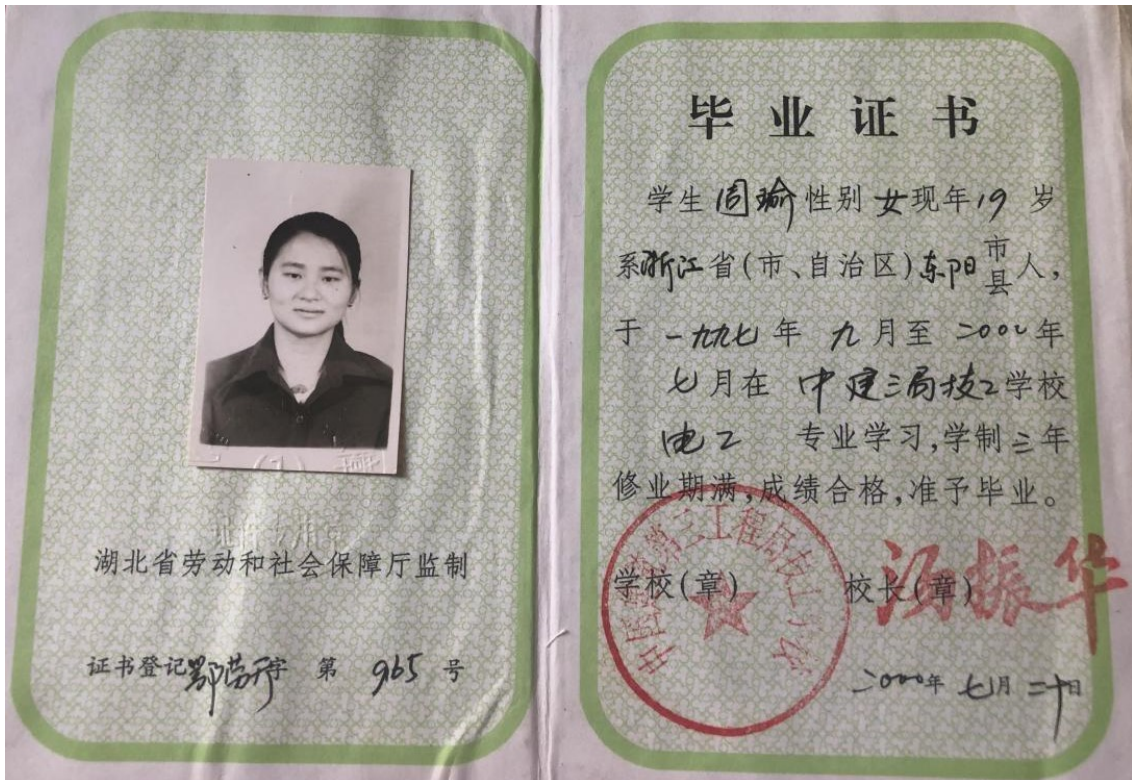 湖北省劳动和社会保障厅监制
证书登记鄂劳 字 第 965 号
毕业证书
学生 周瑜 性别 女 现年 19 岁
系浙江省(市、自治区)东阳市县人,
于 一九九七 年 九 月至 二000年
七月在 中建三局技工学校
电工 专业学习,学制三年
修业期满,成绩合格,准予毕业。
学校(章) 校长(章)
振华
二000年 七月 二十日